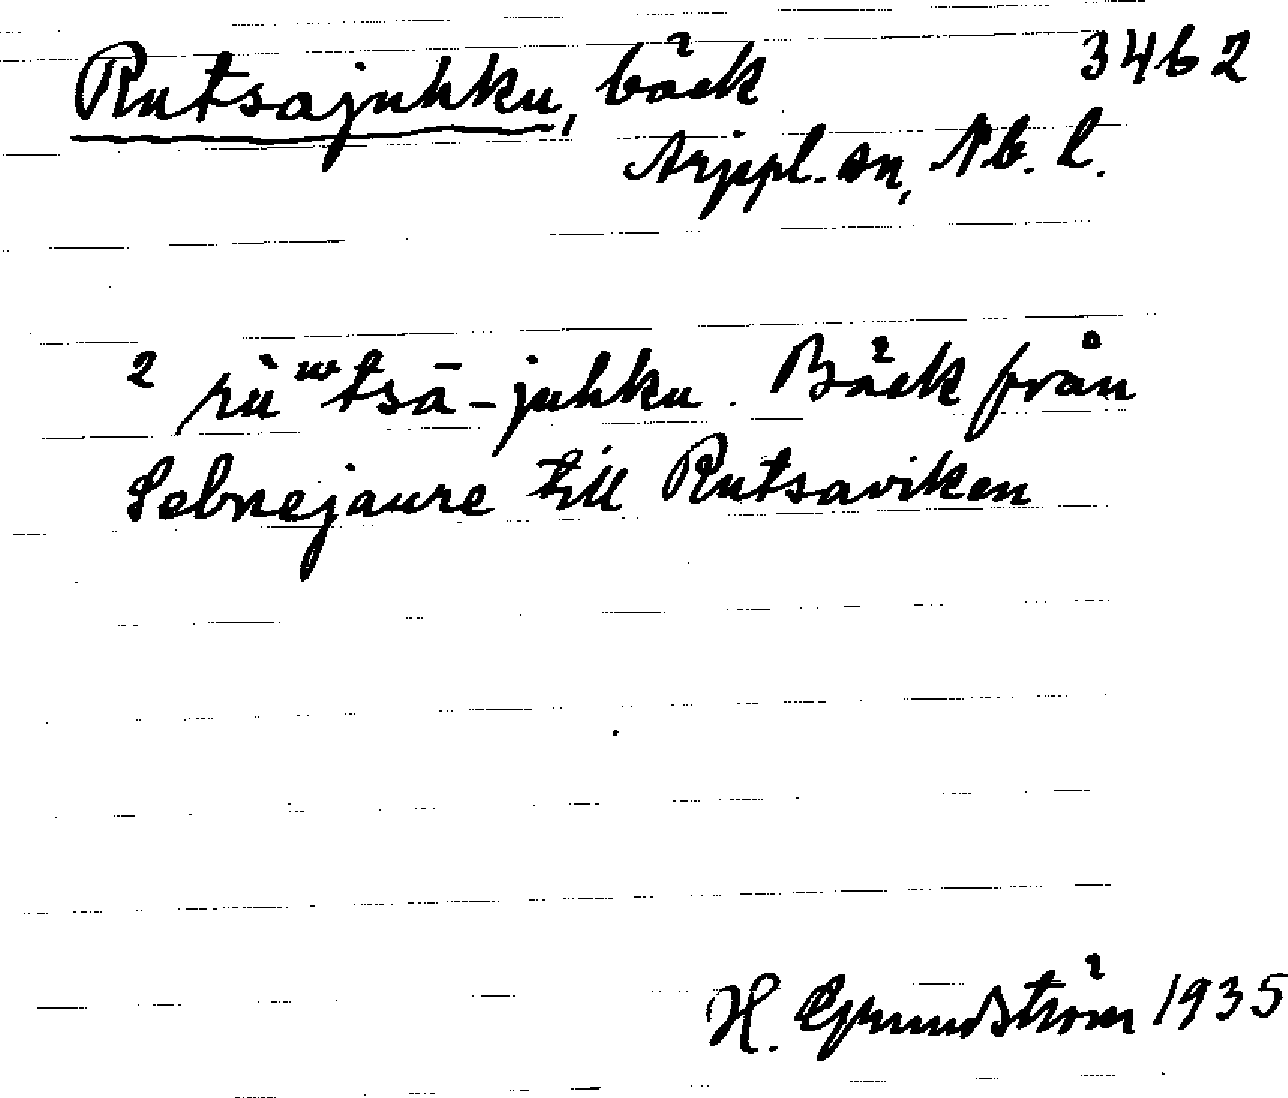 Rutsajuhku, bäck 3462
Arjepl. sn, Nb. l.
2 rùʷtsā-juhku. Bäck från
Sebnejaure till Rutsaviken
H. Grundström 1935